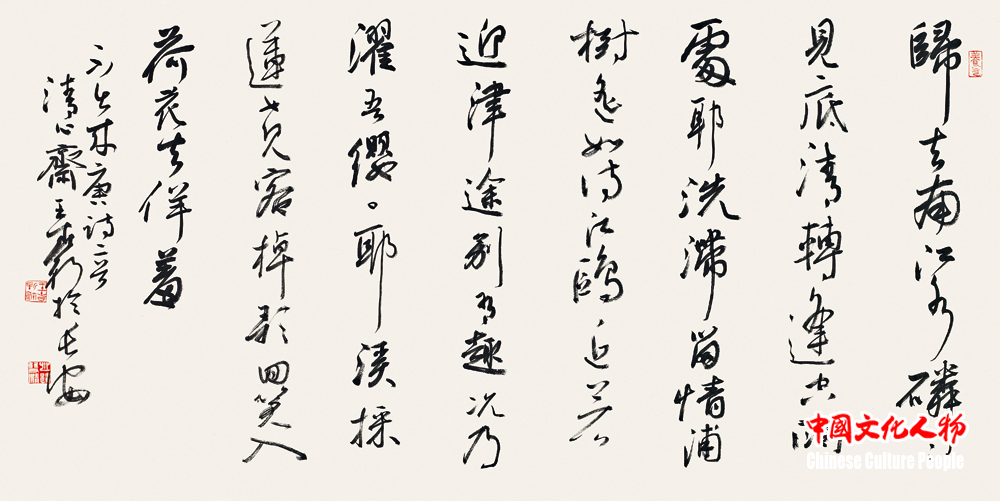 歸去南江水磷々
見底清轉逢空闊
處聊洗滯留情浦
樹遙如待江鷗近若
迎津途別有趣況乃
濯吾纓。耶溪採
蓮女見客棹歌回笑入
荷花去佯羞
不出來唐詩二首
清心齋王於長安
中國文化人物
Chinese Culture People